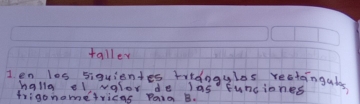 taller
1. en los siguientes triángulos rectángulos,
halla el valor de las funciones
trigonométricas Para B.